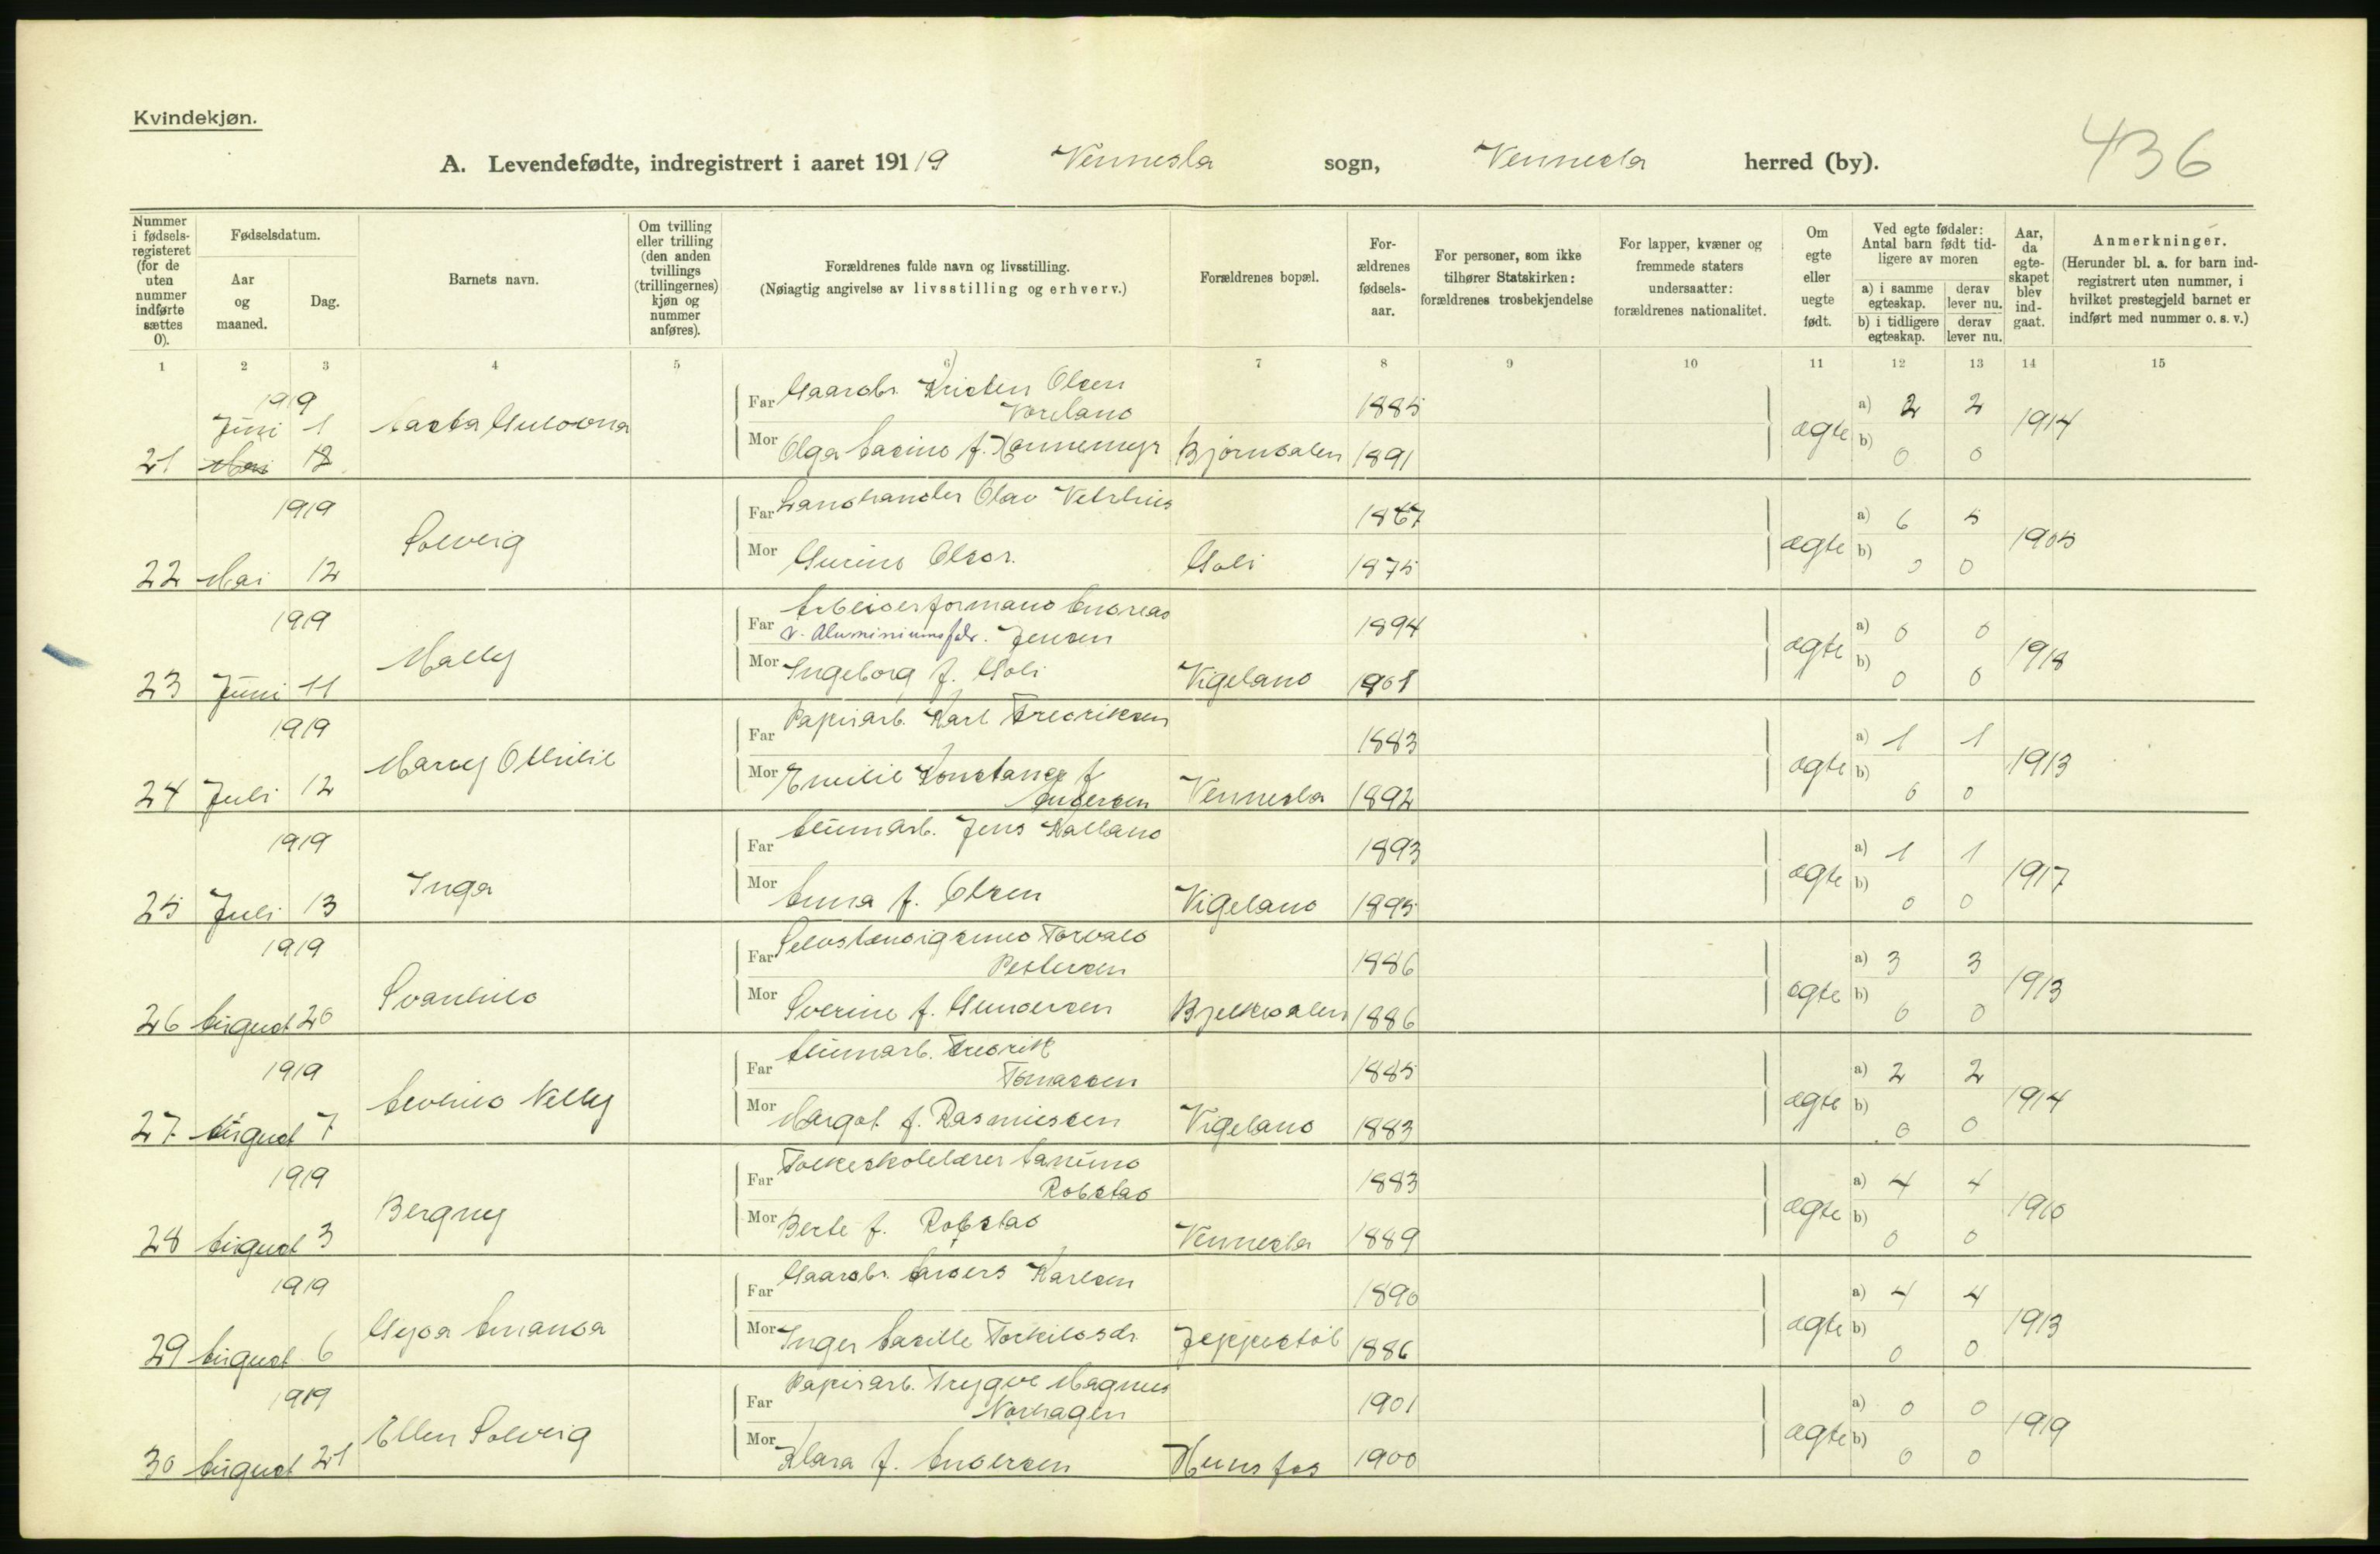 Kvindekjøn.
A. Levendefødte, indregistrert i aaret 1919 Vennesla sogn, Vennesla herred (by). 436
Nummer i fødselsregisteret (for de uten nummer indførte sættes 0).
Fødselsdatum.
Aar og maaned.
Dag.
Barnets navn.
Om tvilling eller trilling (den anden tvillings (trillingernes) kjøn og nummer anføres).
Forældrenes fulde navn og livsstilling.
(Nøiagtig angivelse av livsstilling og erhverv.)
Forældrenes bopæl.
Forældrenes fødselsaar.
For personer, som ikke tilhører Statskirken: forældrenes trosbekjendelse
For lapper, kvæner og fremmede staters undersaatter: forældrenes nationalitet.
Om egte eller uegte født.
Ved egte fødsler: Antal barn født tidligere av moren
a) i samme egteskap. derav lever nu.
b) i tidligere egteskap. derav lever nu.
Aar, da egteskapet blev indgaat.
Anmerkninger.
(Herunder bl. a. for barn indregistrert uten nummer, i hvilket prestegjeld barnet er indført med nummer o. s. v.)
1 2 3 4 5 6 7 8 9 10 11 12 13 14 15
1919
Far Gaardbr. Kristen Olsen
Juni 1
1885 a) 2 2
Mor Olga f. Bjørndalen 1891 ægte b) 0 0 1914
21 Mai
1919
Far Landhandler Olav 1867 a) 6 5
Solveig
22 Mai 12 Mor Gurine Olsdr. Moli 1875 ægte b) 0 0 1905
1919
Far Arbeiderformand Andreas
v. Aluminiumsfabr. Jensen 1894 a) 0 0
Mally
23 Juni 11 Mor Ingeborg f. Moli Vigeland 1901 ægte b) 0 0 1918
1919
Far Papirarb. Karl Fredriksen 1883 a) 1 1
Marry Othilie
24 Juli 12 Mor Emilie Konstance f.
Andersen Vennesla 1892 ægte b) 0 0 1913
1919
Far Alumarb. Jens Kalland 1893 a) 1 1
Inga
25 Juli 13 Mor Anna f. Olsen Vigeland 1895 ægte b) 0 0 1917
1919
Far Torvald
Pedersen 1886 a) 3 3
Svanhild
26 August 20 Mor Sverine f. Gundersen Bjelkedalen 1886 ægte b) 0 0 1913
1919
Far Alumarb. Fredrik
Tomassen 1885 a) 2 2
Nelly
27 August 7 Mor Margot f. Rasmussen Vigeland 1883 ægte b) 0 0 1914
1919
Far Folkeskolelærer Aanund
Robstad 1883 a) 4 4
Bergny
28 August 3 Mor Berte f. Robstad Vennesla 1889 ægte b) 0 0 1910
1919
Far Gaardbr. Anders Karlsen 1890 a) 4 4
Gyda Amanda
29 August 6 Mor Inger Torkildsdr. Jeppestøl 1886 ægte b) 0 0 1913
1919
Far Papirarb. Trygve Magnus
Norhagen 1901 a) 0 0
Ellen Solveig
30 August 21 Mor Klara f. Andersen Hunsfos 1900 ægte b) 0 0 1919